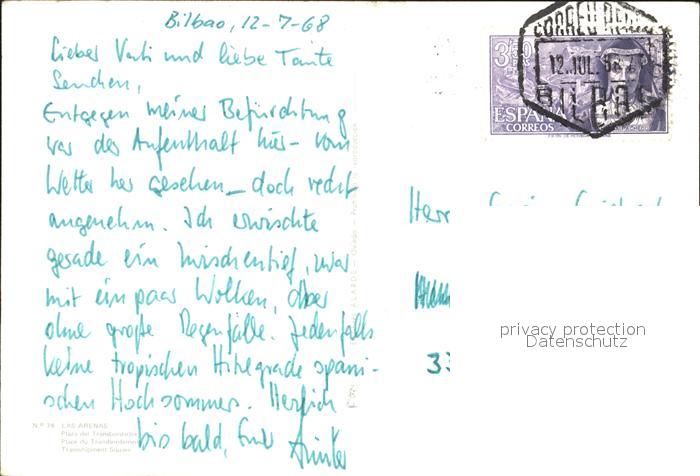 Bilbao, 12-7-68
Lieber Vati und liebe Tante
Lenchen,
Entgegen meiner Befürchtung
war der Aufenthalt hier – vom
Wetter her gesehen – doch recht
angenehm. Ich erwischte
gerade ein Zwischentief, zwar
mit ein paar Wolken, aber
ohne große Regenfälle. Jedenfalls
keine tropischen Hitzegrade spani-
schen Hochsommers. Herzlich
bis bald, Euer Günter
N.º 74 LAS ARENAS
Plaza del Transbordador
Place du Transbordement
Transshipment Square
3'50
PTA
ESPAÑA
CORREOS
12. JUL. 68
BILBAO
Herr
privacy protection
Datenschutz